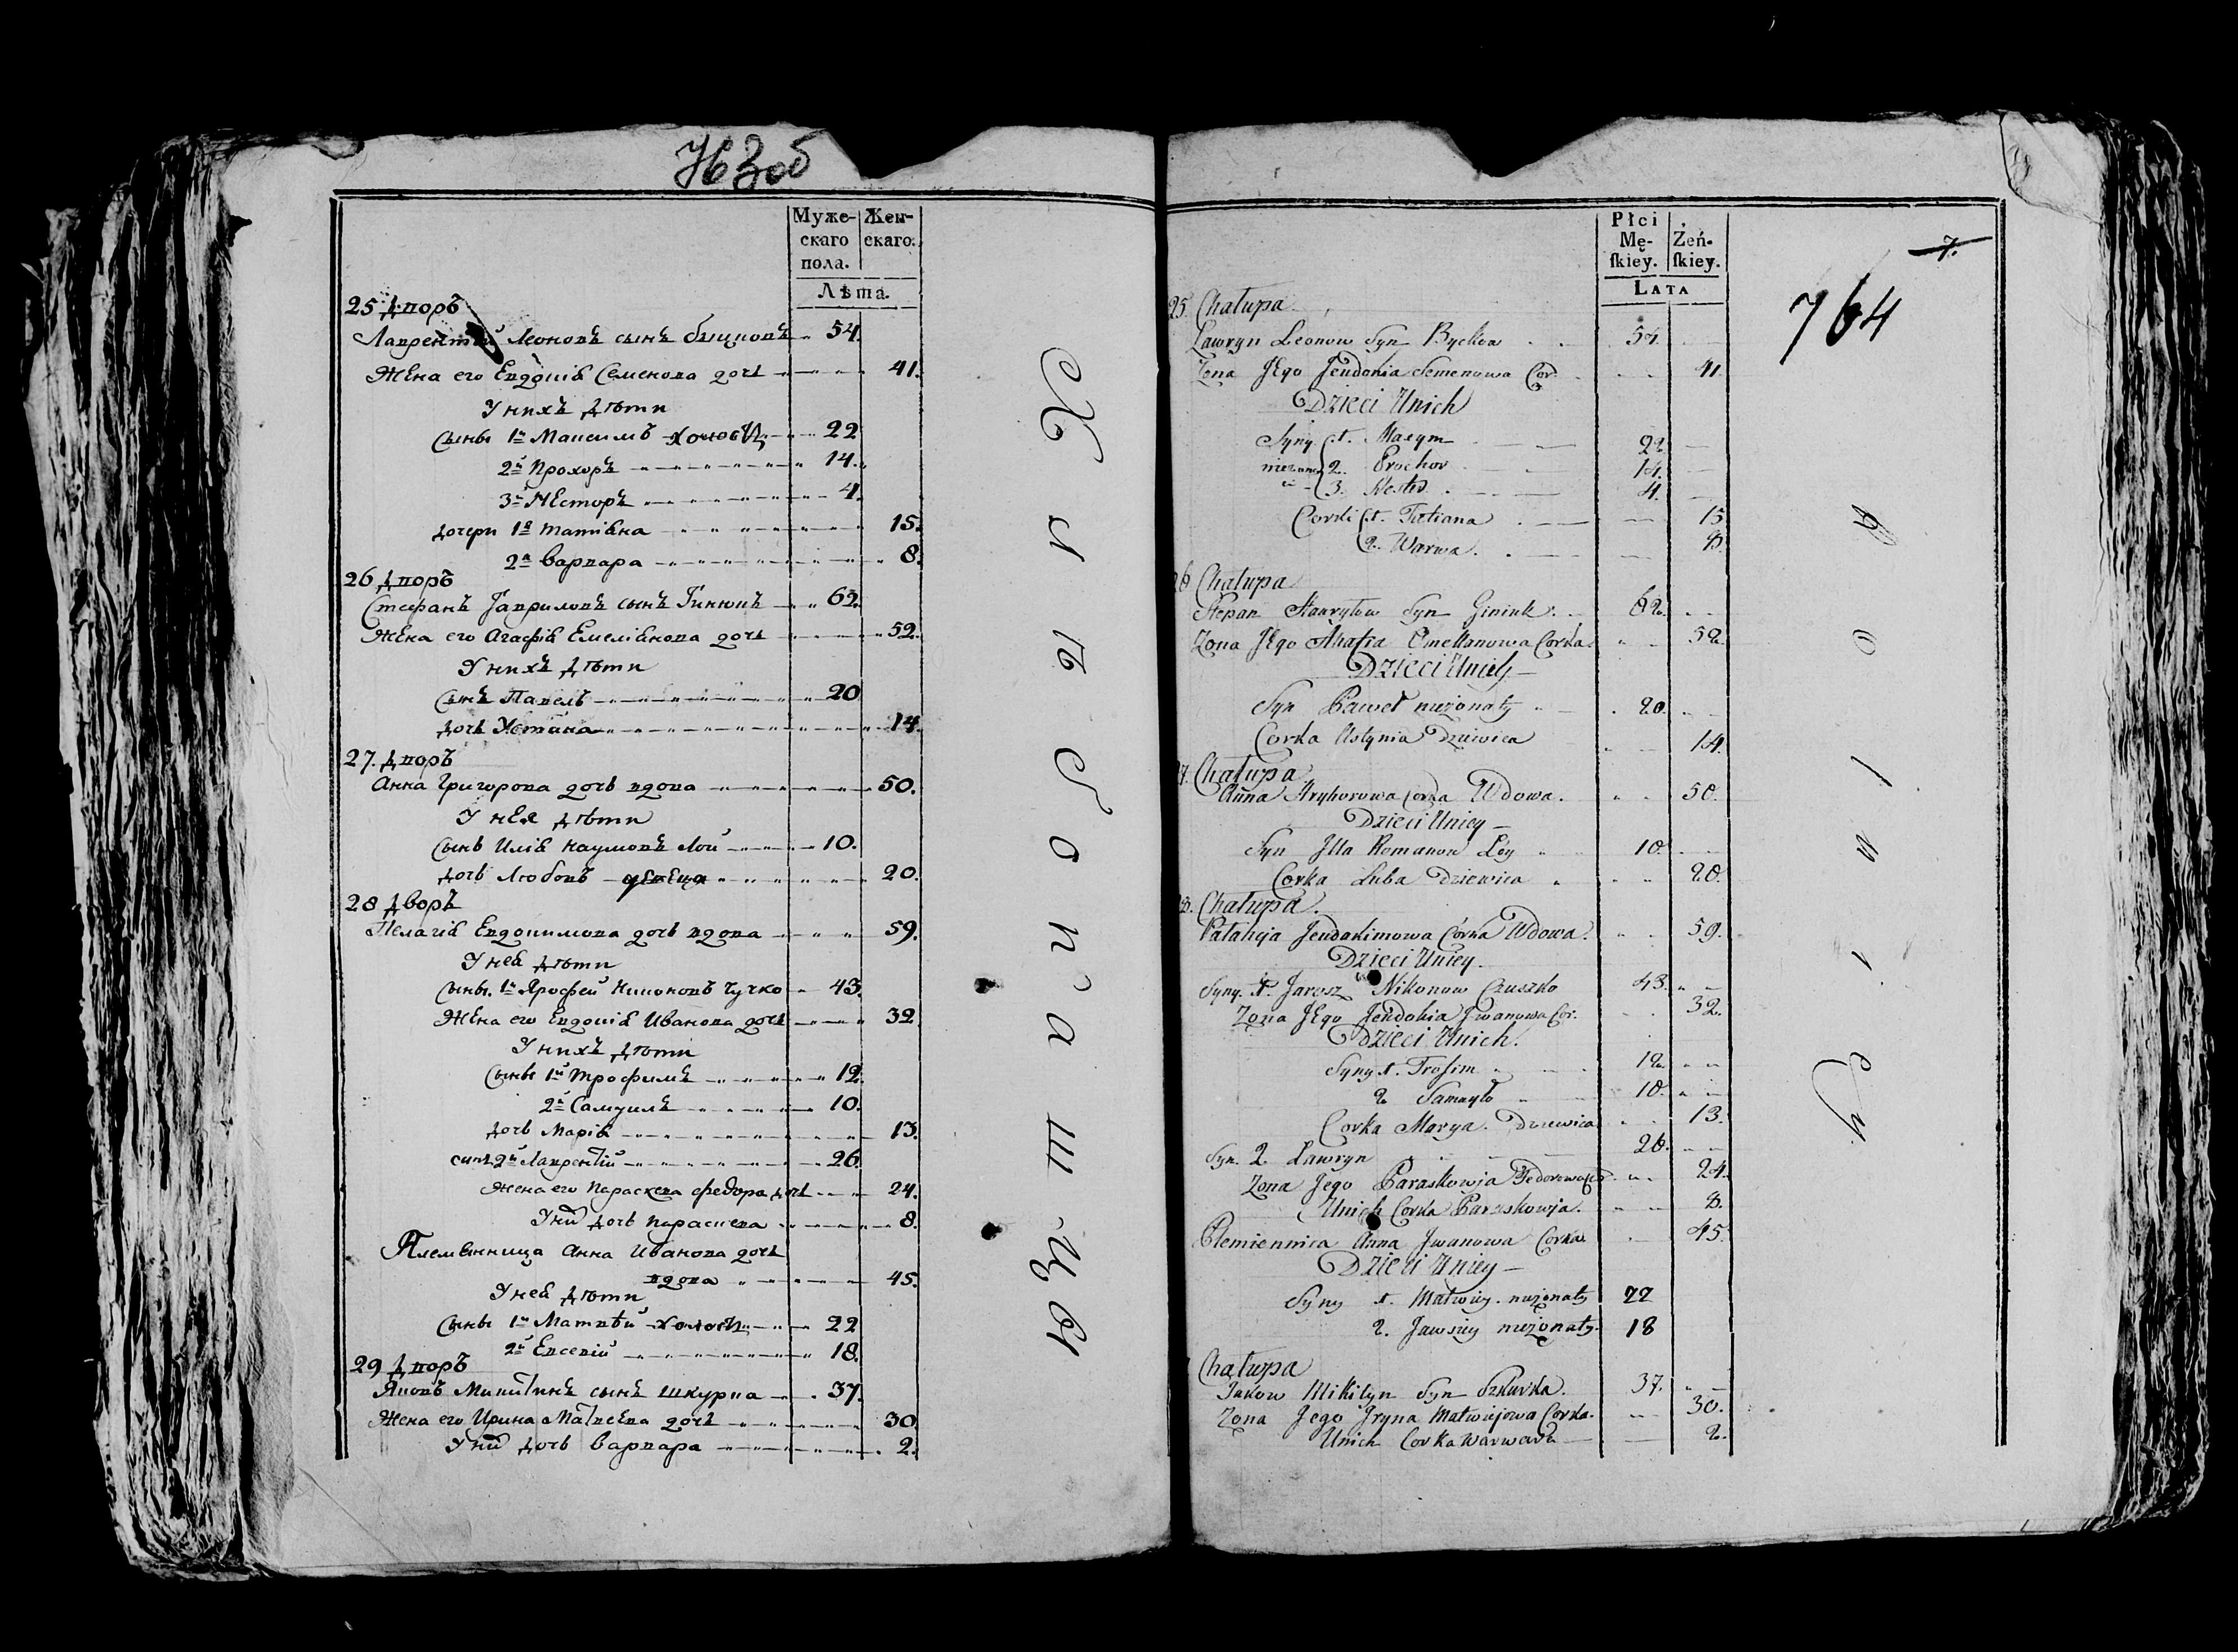 763об
Муже-
скаго
пола.
Жен-
скаго.
Лѣта.
25 Дворъ
Лаврентий Леоновъ сынъ Бычковъ 54.
Жена его Евдокія Семенова дочь 41.
У нихъ дѣти
Сыны 1й Максимъ холостъ 22
2й Прохоръ 14.
3й Несторъ 4.
Дочери 1я Татіяна 15.
2я Варвара 8.
26 Дворъ
Стефанъ Гавриловъ сынъ 62.
Жена его Агафія Емеліянова дочь 52.
У нихъ дѣти
Сынъ Павелъ 20
дочь Устина 14.
27. Дворъ
Анна Григорова дочь вдова 50.
У нея дѣти
Сынъ Илія Наумовъ Лой 10.
дочь Любовъ девица 20.
28 Дворъ
Пелагія Евдокимова дочь вдова 59.
У неѣ дѣти
Сыны. 1й Ярофей Никоновъ Чучко 43.
Жена его Евдокія Иванова дочь 32
У нихъ дѣти
Сыны 1й Трофимъ 12.
2й Самуилъ 10.
дочь Марія 13.
сынъ 2й Лаврентій 26.
Жена его Параскева Федора дочь 24.
У них дочь Параскева 8.
Племянница Анна Иванова дочь
вдова 45.
У неѣ дѣти
Сыны 1й Матвѣй холостъ 22
2й Евсевій 18.
29 Дворъ
Яковъ Микитинъ сынъ Шкурка 37.
Жена его Ирина Матвеева дочь 30.
У них дочь Варвара 2.
Płci
Mę-
ſkiey.
Żeń-
ſkiey.
LATA
7.
764
25. Chałupa
Ławryn Leonow Syn Byckow 54.
Zona Jego Jeudonia Semenowa Cor. 41
Dzieci Unich
Syny 1. Maxym 22
2. Prochor 14.
3. Nester 4.
Corki 1. Tatiana 15
2. Warwa. 8.
26 Chałupa
Stepan Hauryłow Syn Giniuk. 62.
Zona Jego Ahafia Emelianowa Corka 52
Dzieci Unich
Syn Paweł nieżonaty 20.
Corka Ustynia Dziewica 14
27. Chałupa
Anna Hryhorowa Corka Wdowa. 50.
Dzieci Uniey
Syn Illa Romanow Ley 10.
Corka Luba Dziewica 20.
28. Chałupa.
Pałaheja Jeudakimowa Córka Wdowa. 59.
Dzieci Uniey.
Syny. 1. Jarosz Nikonow Czuszko 43.
Zona Jego Jeudokia Jwanowa Cor. 32.
Dzieci Unich.
Syny 1. Trofim 12.
2 Samuyło 10.
Corka Marya. Dziewica 13.
Syn. 2 Ławryn 26.
Zona Jego Paraskowja Fedorowa Cor. 24.
Unich Corka Paraskowja. 8.
Plemiennica Anna Jwanowa Corka 45
Dzieci Uniey
Syny 1. Matwiey. nieżonaty 22
2. Jawsiey nieżonaty. 18
Chałupa
Jakow Mikityn Syn Szkurka. 37.
Zona Jego Jryna Matwiejowa Corka. 30.
Unich Corka Warwara 2.